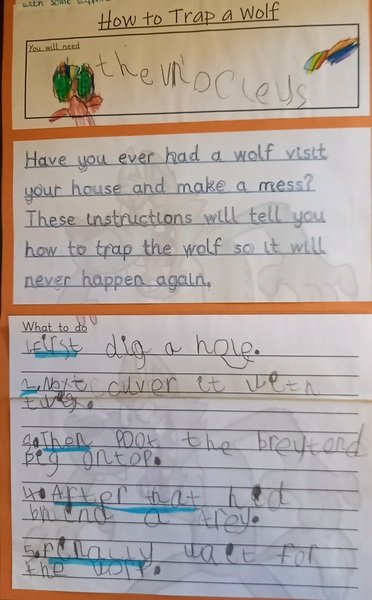 with some support
How to Trap a Wolf
You will need
the
Have you ever had a wolf visit
your house and make a mess?
These instructions will tell you
how to trap the wolf so it will
never happen again.
What to do
1. First dig a hole.
2. Next cuver it weth
3. Then poot the breytend
peg ontop.
4. After that hed
bhind a trey.
5. Finally wait for
the wolf.